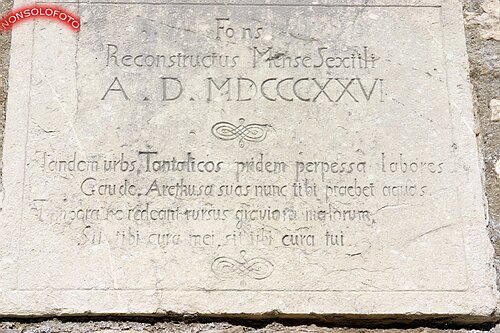 NONSOLOFOTO
Fons
Reconstructus Mense Sextili
A. D. MDCCCXXVI
Tandem urbs, Tantalicos pridem perpessa labores
Gaude, Arethusa suas nunc tibi praebet aquas.
Tempora ne redeant rursus graviora malorum,
Sit tibi cura mei, sit tibi cura tui.